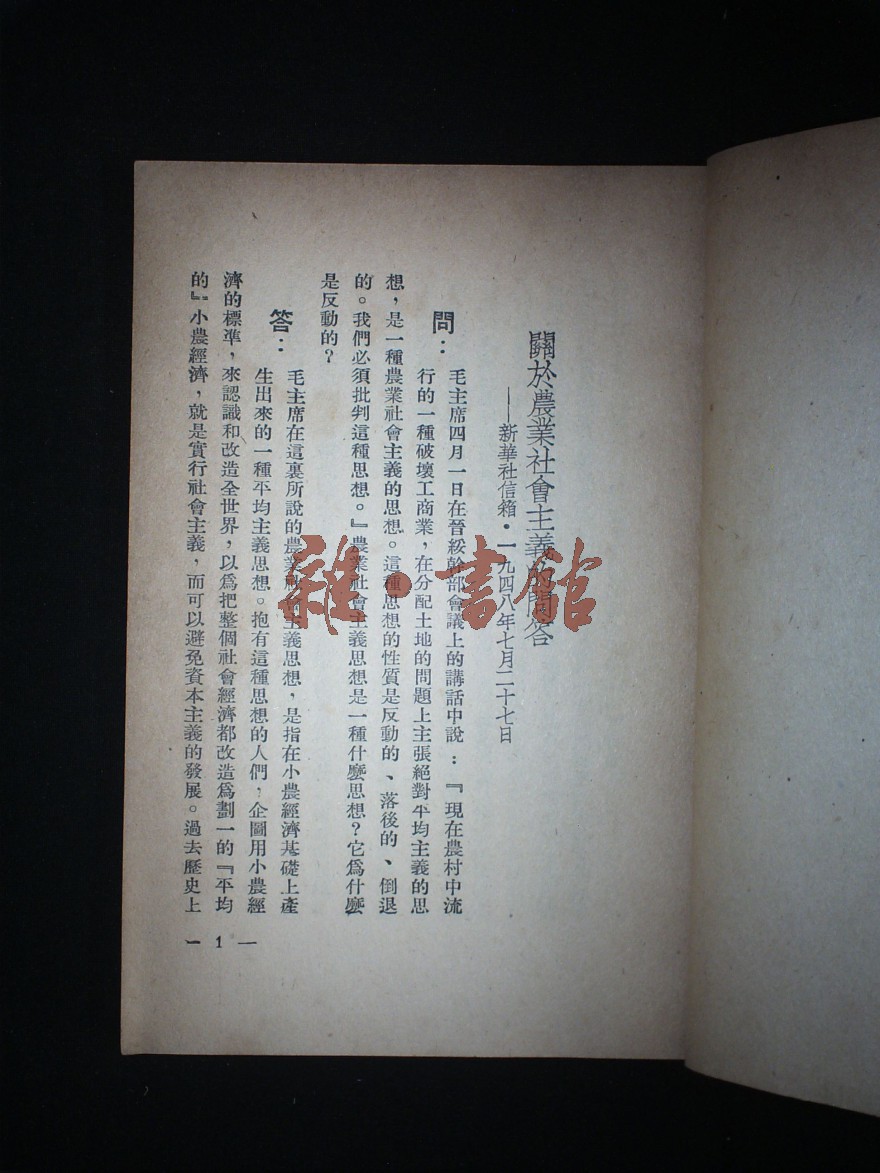 關於農業社會主義的問答
——新華社信箱·一九四八年七月二十七日
問：
毛主席四月一日在晉綏幹部會議上的講話中說：『現在農村中流
行的一種破壞工商業，在分配土地的問題上主張絕對平均主義的思
想，是一種農業社會主義的思想。這種思想的性質是反動的、落後的、倒退
的。我們必須批判這種思想。』農業社會主義思想是一種什麽思想？它爲什麽
是反動的？
答：
毛主席在這裏所說的農業社會主義思想，是指在小農經濟基礎上產
生出來的一種平均主義思想。抱有這種思想的人們，企圖用小農經
濟的標準，來認識和改造全世界，以爲把整個社會經濟都改造爲劃一的『平均
的』小農經濟，就是實行社會主義，而可以避免資本主義的發展。過去歷史上
— 1 —
雜·書館